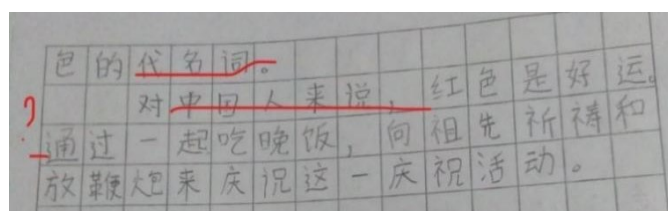 色的代名词。
对中国人来说，红色是好运。
通过一起吃晚饭，向祖先祈祷和
放鞭炮来庆祝这一庆祝活动。